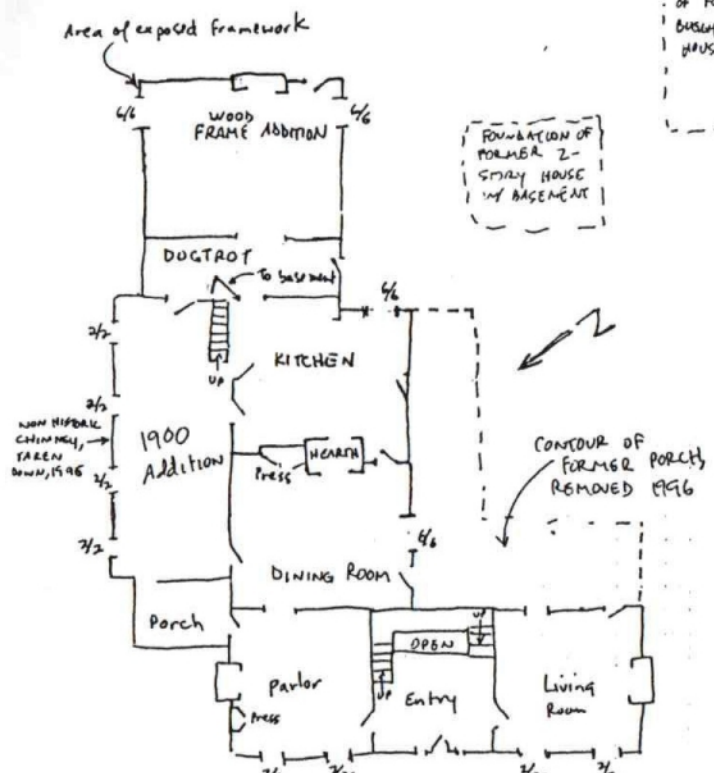 Area of exposed framework
OF
HOUS
6/6
WOOD
FRAME ADDITION
6/6
FOUNDATION OF
FORMER 2-
STORY HOUSE
W/ BASEMENT
DOGTROT
To basement
6/6
2/2
UP
KITCHEN
2/2
NON HISTORIC
CHIMNEY,
TAKEN
DOWN, 1996
1900
Addition
Press
HEARTH
CONTOUR OF
FORMER PORCH,
REMOVED 1996
2/2
2/2
6/6
DINING ROOM
Porch
UP
OPEN
UP
Parlor
Entry
Living
Room
Press